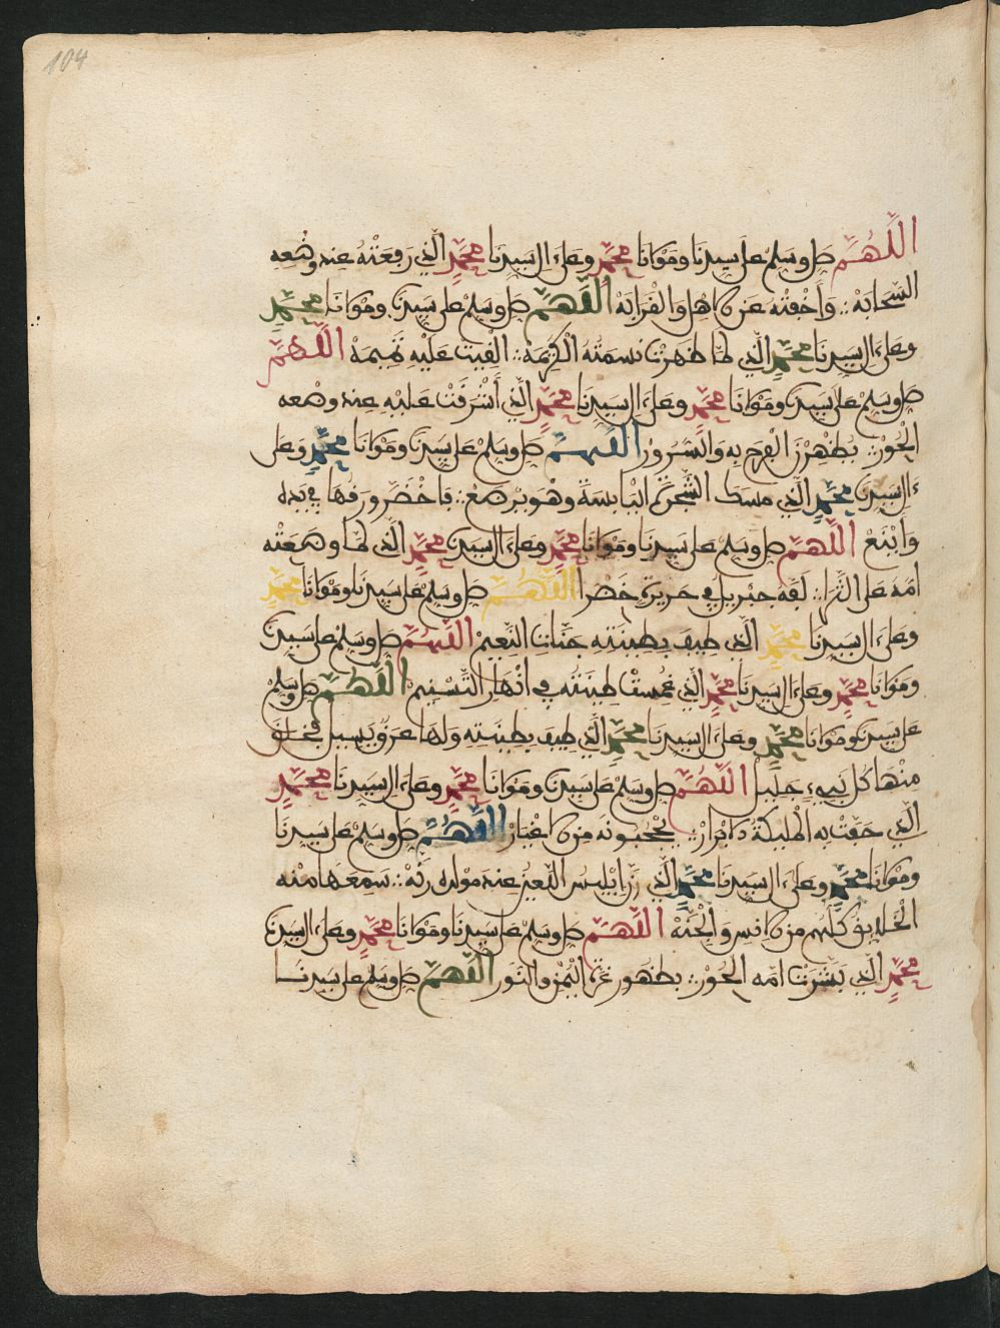 104
اللهم صل وسلم على سيدنا ومولانا محمد وعلى ءال سيدنا محمد الذي رفعته عند وضعه
السحابة وأخفته عن الاهل والقرابة اللهم صل وسلم على سيدنا ومولانا محمد
وعلى ءال سيدنا محمد الذي لما ظهرت نسمته الكريمة ألقيت عليه تميمة اللهم
صل وسلم على سيدنا ومولانا محمد وعلى ءال سيدنا محمد الذي أشرفت عليه عند وضعه
الحور يظهرن الفرح به والسرور اللهم صل وسلم على سيدنا ومولانا محمد وعلى
ءال سيدنا محمد الذي مسك الشجرة اليابسة وهو يرضع فاخضر ورقها في يده
وأينع اللهم صل وسلم على سيدنا ومولانا محمد وعلى ءال سيدنا محمد الذي لما وضعته
امه على الثرا لفه جبريل في حريرة خضرا اللهم صل وسلم على سيدنا ومولانا محمد
وعلى ءال سيدنا محمد الذي طيف بطينته جنات النعيم اللهم صل وسلم على سيدنا
ومولانا محمد وعلى ءال سيدنا محمد الذي غمست طينته في انهار التسنيم اللهم صل وسلم
على سيدنا ومولانا محمد وعلى ءال سيدنا محمد الذي طيف بطينته ولها عرق يسيل فخلق
منها كل نبيء جليل اللهم صل وسلم على سيدنا ومولانا محمد وعلى ءال سيدنا محمد
الذي حفت به المليكة الابرار يحجبونه من الاغيار اللهم صل وسلم على سيدنا
ومولانا محمد وعلى ءال سيدنا محمد الذي رن ابليس اللعين عند مولده رنة سمعها منه
الخلايق كلهم من الانس والجنة اللهم صل وسلم على سيدنا ومولانا محمد وعلى ءال سيدنا
محمد الذي بشرت امه الحور بظهور غرة اليمن والنور اللهم صل وسلم على سيدنا